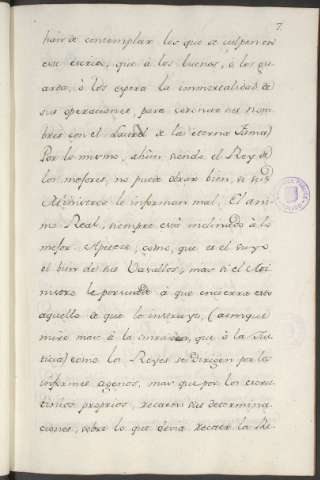 7.
han de contemplar los que se
esta, que á los buenos, ó los
arda, ó los espera la inmortalidad de
sus operaciones, para coronar sus nom-
bres con el Laurel de la eterna Fama.
Por lo mismo, aun siendo el Rey de
los mejores, no puede obrar bien, si sus
Ministros le informan mal. El ani-
mo Real, siempre está inclinado á lo
mejor. Apetece, como, que es el suyo
el bien de sus Vasallos; mas si el Mi-
nistro le persuade á que encierra esto
aquello de que lo instruye, (aunque
mire mas á la que á la Jus-
ticia) como los Reyes se dirigen por los
informes agenos, mas que por los escru-
tinios proprios, recaen sus determina-
ciones, sobre lo que devia recaer la Re-